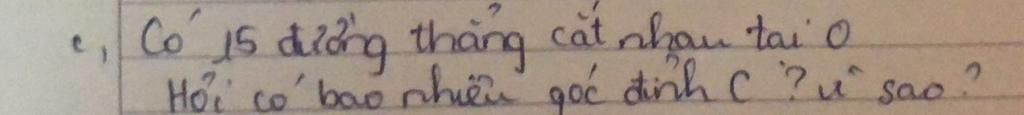 c, Có 15 đường thẳng cắt nhau tại O
Hỏi có bao nhiêu góc đỉnh C ? vì sao ?